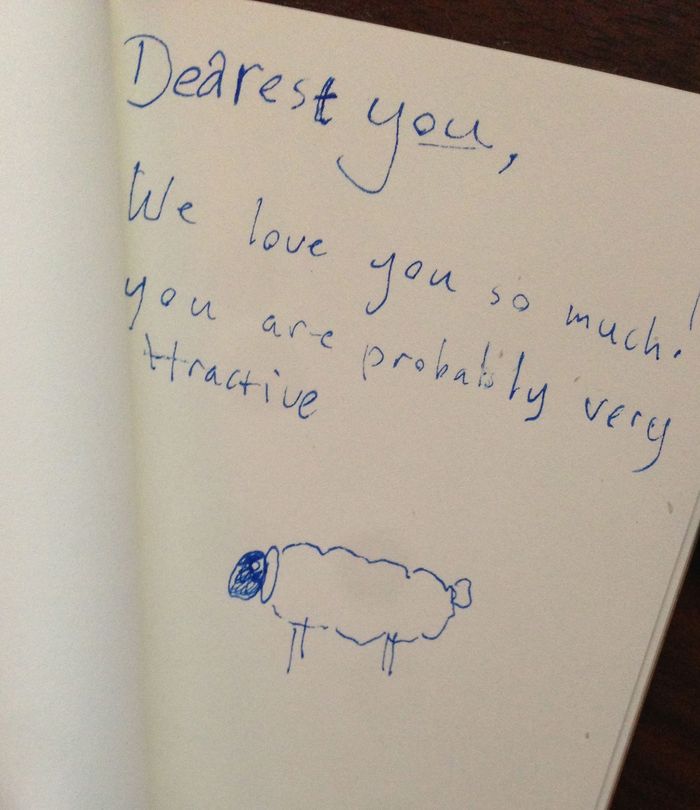 Dearest you,
We love you so much!
you are probably very
attractive